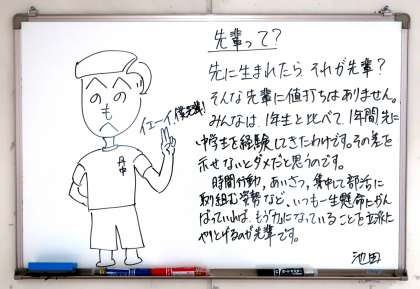 先輩って?
先に生まれたら それが先輩?
そんな先輩に値打ちはありません。
みんなは、1年生と比べて、1年間先に
中学生を経験してきたわけです。その差を
示せないとダメだと思うのです。
時間行動、あいさつ、集中して部活に
取組む姿勢など、いつも一生懸命にがん
ばっていれば、もう力になっていることを立派に
やりとげるのが先輩です。
池田
イェーイ、僕先輩!
へのへの
も
へ
丹中